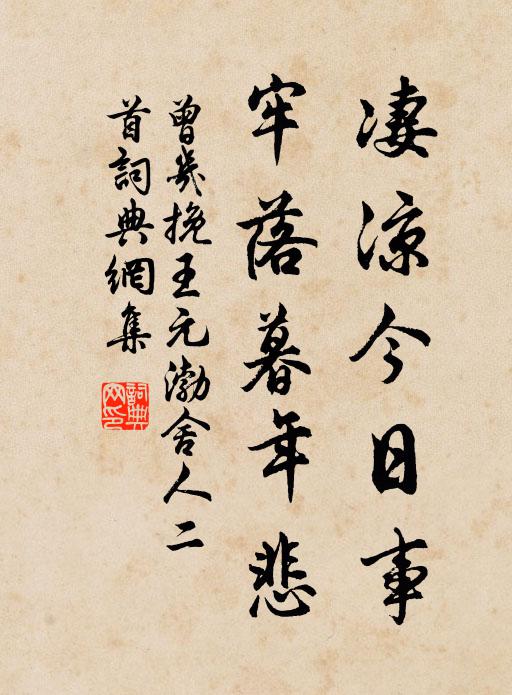 凄涼今日事
牢落暮年悲
曾幾挽王元渤舍人二
首詞典網集
詞典
网印